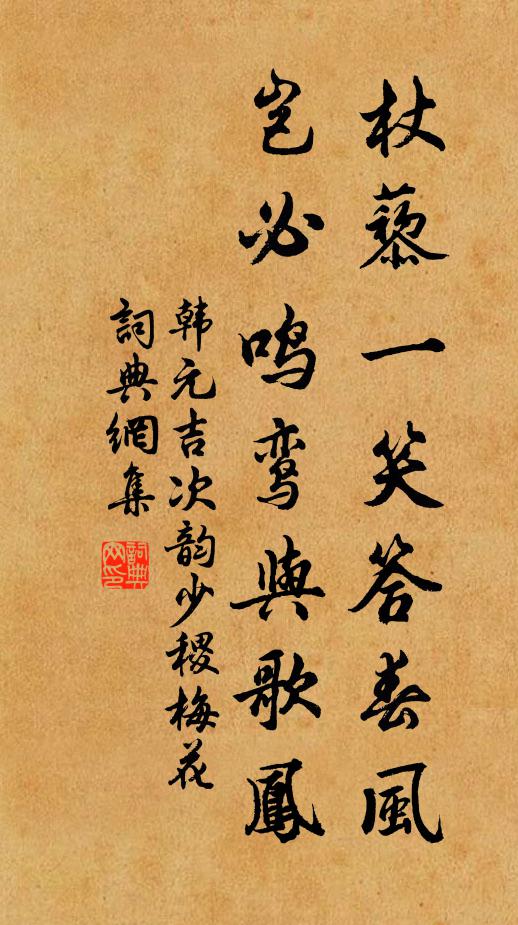 杖藜一笑答春風
岂必鸣鸾與歌鳳
韩元吉次韵少稷梅花
詞典網集
詞典网印